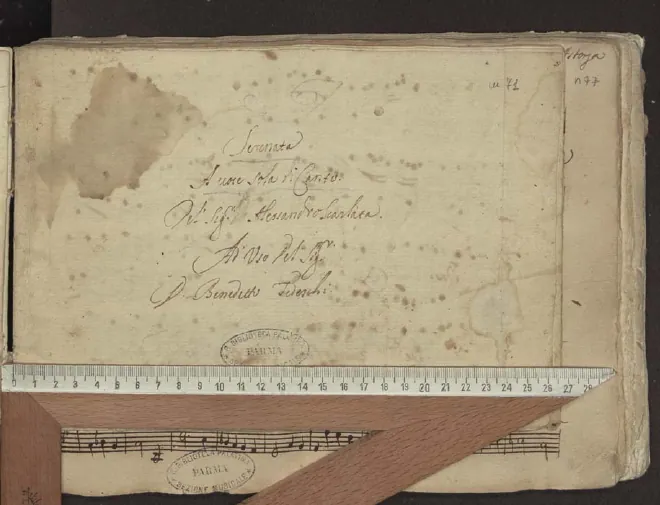 n 71
n 77
Serenata
A voce sola di Canto
Del Sig.r Alessandro Scarlata.
Ad Uso Del Sig.r
D. Benedetto
R. BIBLIOTECA PALATINA
PARMA
0 1 2 3 4 5 6 7 8 9 10 11 12 13 14 15 16 17 18 19 20 21 22 23 24 25 26 27 28
R. BIBLIOTECA PALATINA
PARMA
SEZIONE MUSICALE